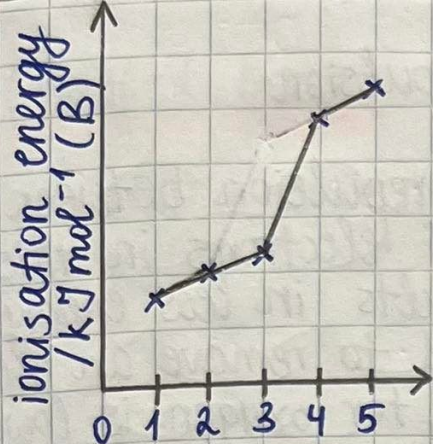 ionisation energy
/kJ mol-1 (B)
0 1 2 3 4 5